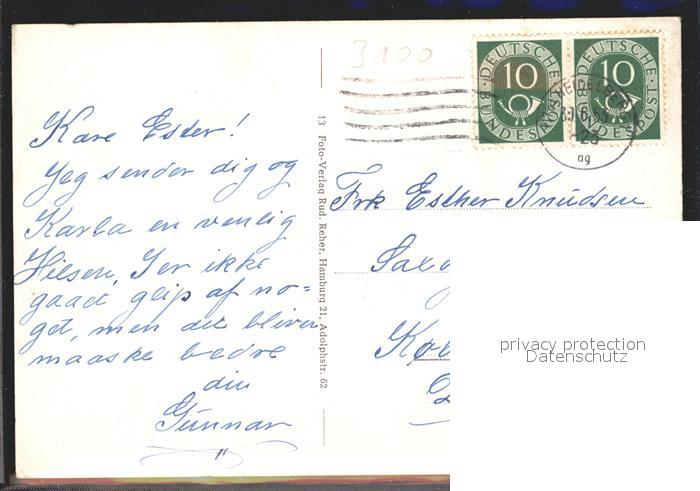 3100
DEUTSCHE BUNDESPOST
10
DEUTSCHE BUNDESPOST
10
HEIDELBERG
ag
Kære Ester!
Jeg sender dig og
Karla en venlig
Hilsen, I er ikke
gaaet glip af no-
get, men det bliver
maaske bedre
din
Gunnar
13 Foto-Verlag Rud. Reher, Hamburg 21, Adolphstr. 62
Frk Esther Knudsen
Saxo
Køb
privacy protection
Datenschutz